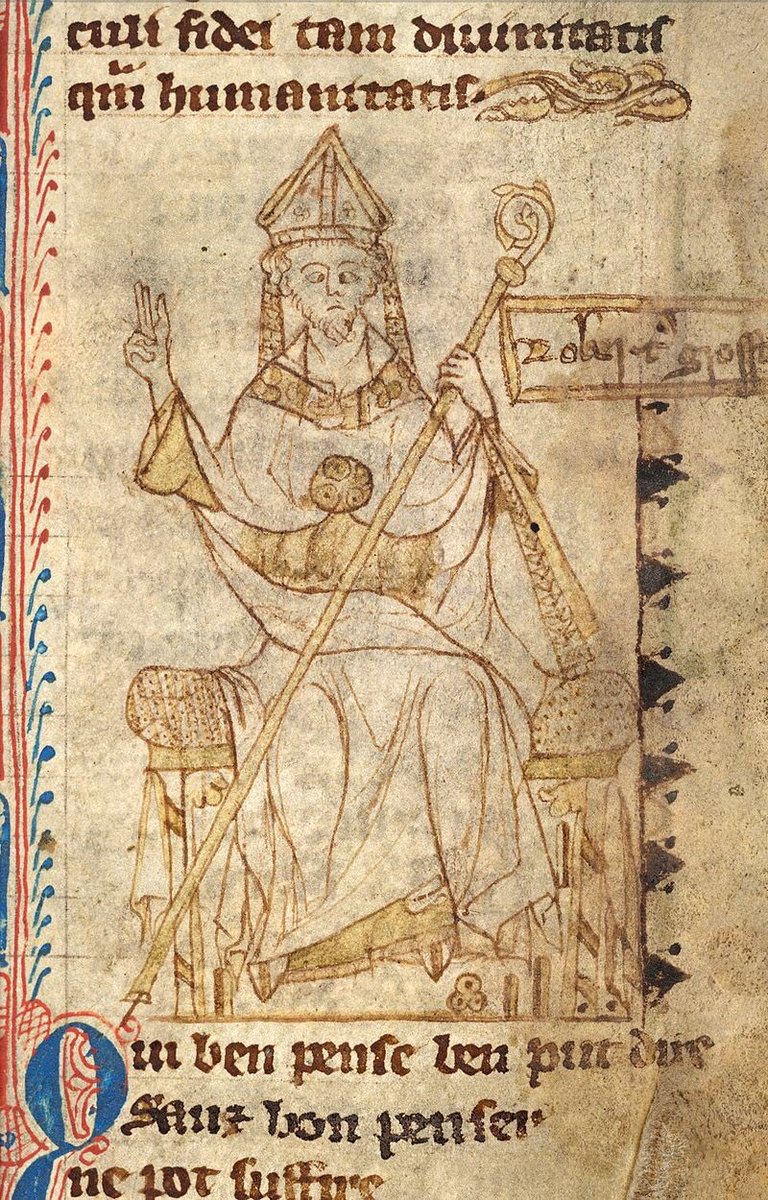 culi fidei tam diuinitatis
qm̄ humanitatis.
Rob̄t9 grosst
Qui ben pense ben put dire
Sanz bon penser
ne pot suffire